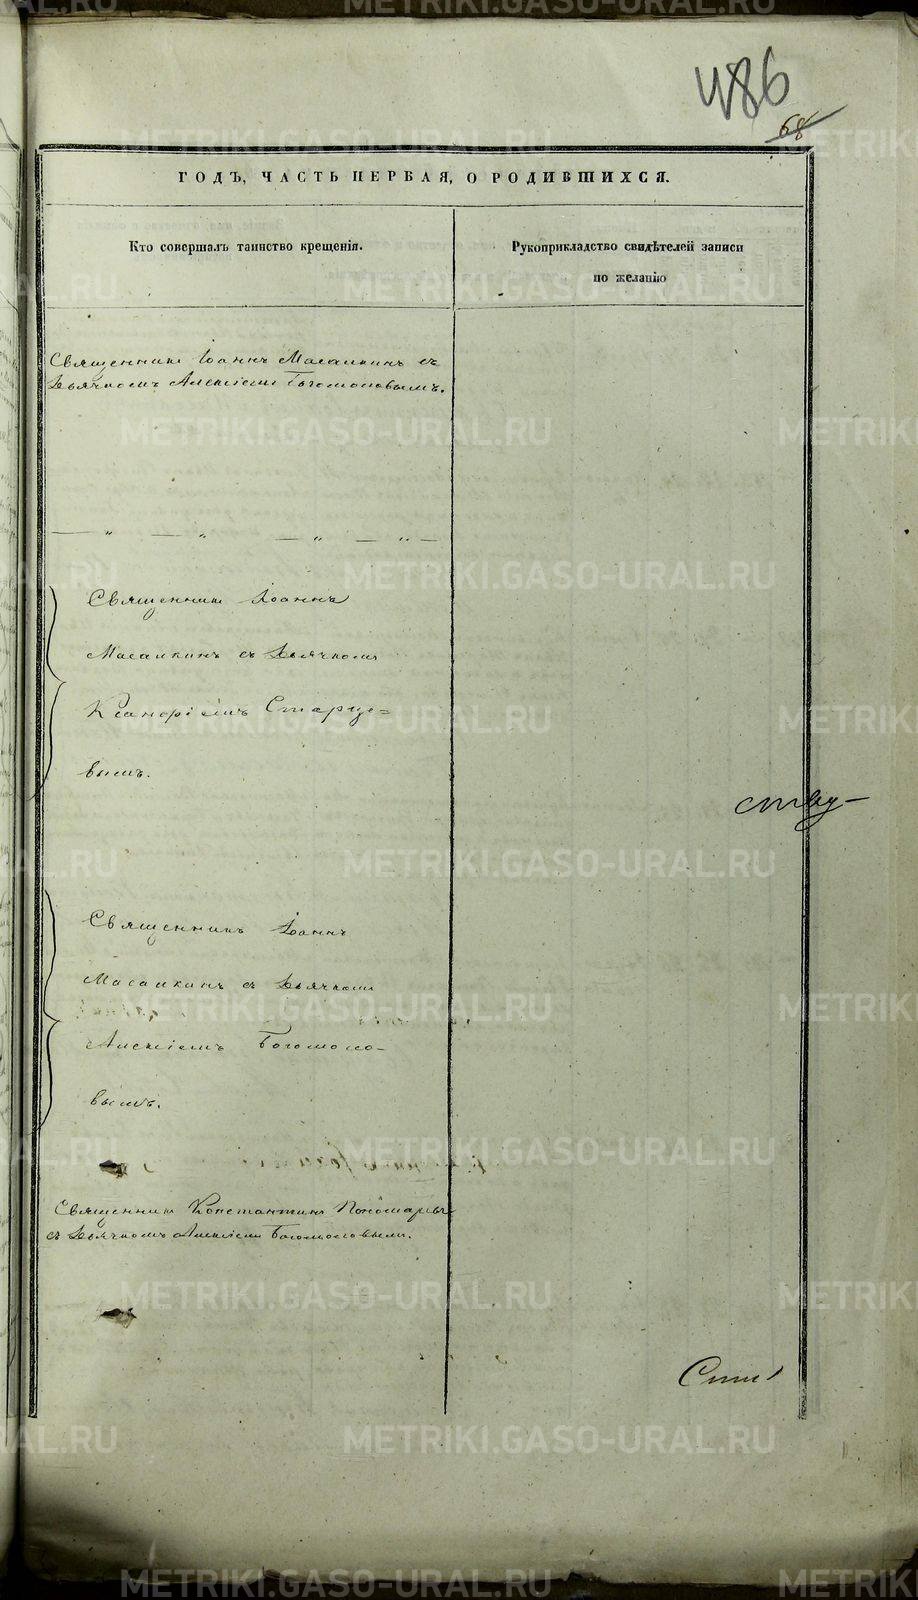 486
68
ГОДЪ, ЧАСТЬ ПЕРВАЯ, О РОДИВШИХСЯ.
Кто совершалъ таинство крещенія.
Рукоприкладство свидѣтелей записи
по желанію
Священникъ Іоаннъ Масалкинъ съ
Дьячкомъ Алексіемъ Богомоловымъ.
— " — " — " — " —
Священникъ Іоаннъ
Масалкинъ съ Дьячкомъ
Ксанфіемъ Старце=
вымъ.
Священникъ Іоаннъ
Масалкинъ съ Дьячкомъ
Алексіемъ Богомоло-
вымъ.
Священникъ Константинъ Пономаревъ
съ Дьячкомъ Алексіемъ Богомоловымъ.
METRIKI.GASO-URAL.RU